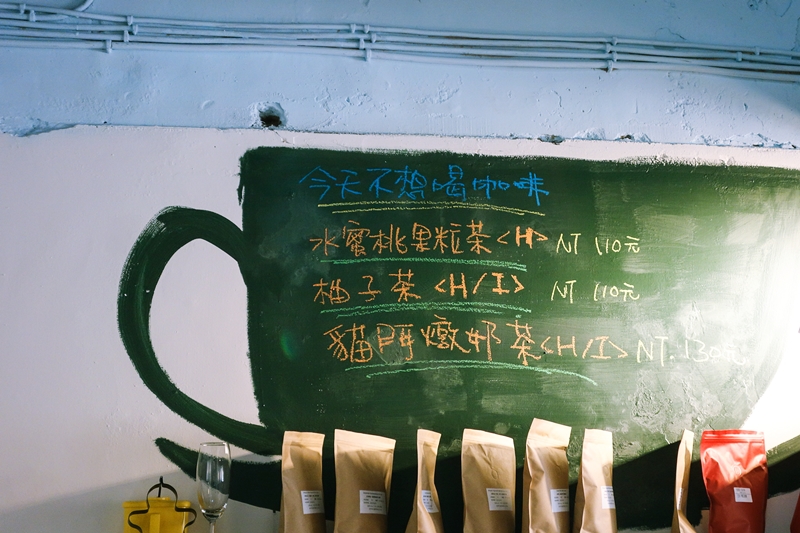 今天不想喝咖啡
水蜜桃果粒茶<H> NT 110元
柚子茶 <H/I> NT 110元
貓門燉奶茶<H/I> NT.130元